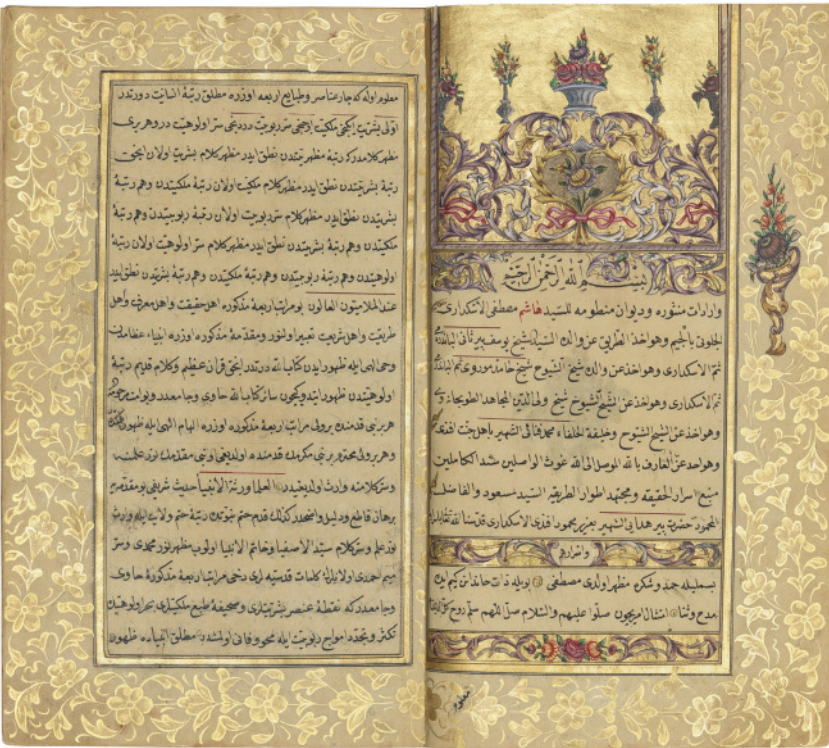 بسم الله الرحمن الرحيم
واردات منثوره وديوان منظومه للسيد هاشم مصطفى الاسكدارى
الجلوتى بالجيم وهو اخذ الطريق عن والده السيد الشيخ يوسف پير ثانى
ثم الاسكدارى وهو اخذ عن والده شيخ الشيوخ شيخ حامد موروى ثم
ثم الاسكدارى وهو اخذ عن الشيخ الشيوخ شيخ ولى الدين المجاهد
وهو اخذ عن الشيخ الشيوخ وخليفة الخلفاء محمد فنائى الشهير باهل جنت افندى
وهو اخذ عن العارف بالله الموصل الى الله غوث الواصلين سند الكاملين
منبع اسرار الحقيقه ومجتهد اطوار الطريقه السيد مسعود والفاضل
المحمود حضرت پير هدايى الشهير بعزيز محمود افندى الاسكدارى قدسنا الله
بسمليله حمد وشكره مظهر اولدى مصطفى بويله ذات
مدح وثنا امتثال امريچون صلوا عليهم والسلام صل اللهم سلم روح
معلوم
معلوم اوله كه چار عناصر وطبايع اربعه اوزره مطلق رتبۀ انسانيت دورتدر
اولى بشريت ايكنجى ملكيت اوچنجى سر ربوبيت دردنجى سر اولوهيت در وهر برى
مظهر كلامدر كه رتبۀ مظهريتندن نطق ايدر مظهر كلام بشريت اولان ايكنجى
رتبۀ بشريتدن نطق ايدر مظهر كلام ملكيت اولان رتبۀ ملكيتدن وهم رتبۀ
بشريتدن نطق ايدر مظهر كلام سر ربوبيت اولان رتبۀ ربوبيتدن وهم رتبۀ
ملكيتدن وهم رتبۀ بشريتدن نطق ايدر مظهر كلام سر اولوهيت اولان رتبۀ
اولوهيتدن وهم رتبۀ ربوبيتدن وهم رتبۀ ملكيتدن وهم رتبۀ بشريتدن نطق ايدر
عند الملاميون العالون بو مراتب اربعۀ مذكوره اهل حقيقت واهل معرفت واهل
طريقت واهل شريعت تعبير اولنور ومقدمۀ مذكوره اوزره انبياء عظامدن
وحى الهى ايله ظهور ايدن كتاب الله درتدر قرآن عظيم وكلام قديم رتبۀ
اولوهيتدن ظهور ايتديكيچون سائر كتاب الله حاوى وجامعدر
هر بر نبى قدمنده بر ولى مراتب اربعۀ مذكوره اوزره الهام الهى ايله ظهور
وهر بر ولى محترم بر نبى مكرمك قدمنده اولديغى ونبى مقدمك نور علمنه
وسر كلامنه وارث اولديغيدر العلما ورثة الانبيا حديث شريفى بو مقدمه
برهان قاطع ودليل واضحدر كذلك قدم ختم نبوتدن رتبۀ ختم ولايت ايله وارث
نور علم وسر كلام سيد الاصفيا وخاتم الانبيا اولوب مظهر نور محمدى وسر
ميم احمدى اولانلرك كلمات قدسيه لرى دخى مراتب اربعۀ مذكورۀ حاوى
وجامعدر كه نقطۀ عنصر بشريتلرى وصحيفۀ طبع ملكيتلرى بحر اولوهيتك
تكثر وتجدد امواج ربوبيت ايله محو وفانى اولمشدر مطلق انبياده ظهور